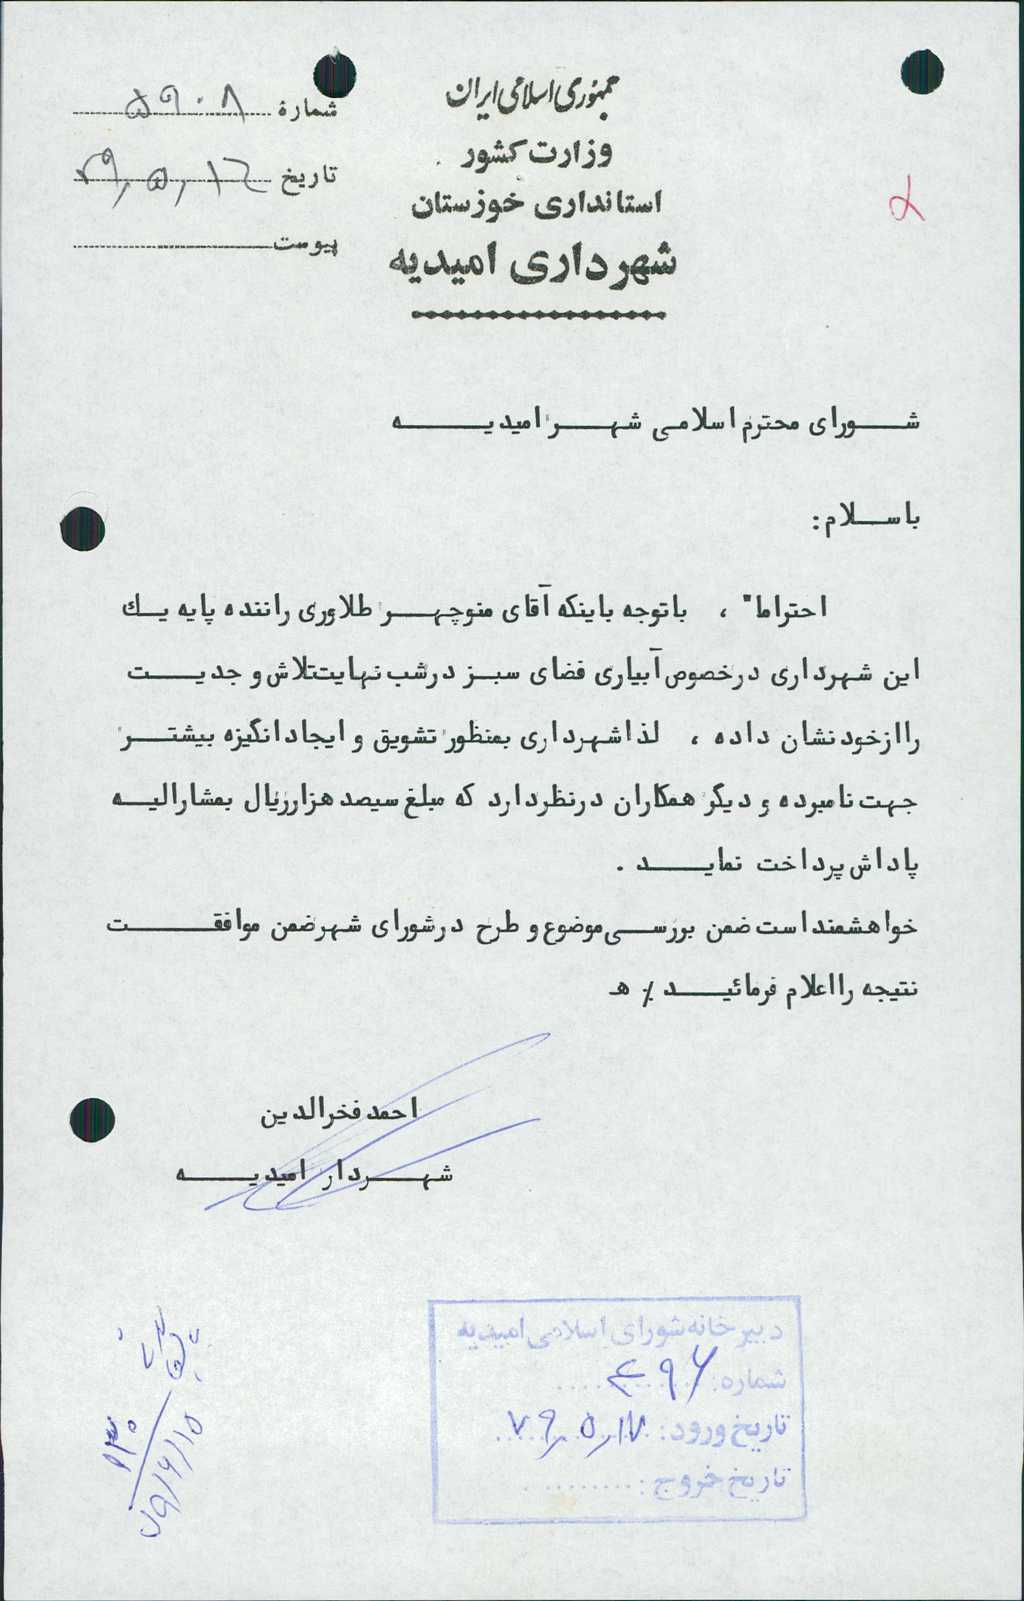 جمهوری اسلامی ایران
وزارت کشور
استانداری خوزستان
شهرداری امیدیه
شماره ۵۹۰۸
تاریخ
پیوست
شورای محترم اسلامی شهر امیدیه
باسلام:
احتراما" ، باتوجه باینکه آقای منوچهر طلاوری راننده پایه یک
این شهرداری درخصوص آبیاری فضای سبز درشب نهایت تلاش و جدیت
را ازخود نشان داده ، لذا شهرداری بمنظور تشویق و ایجاد انگیزه بیشتر
جهت نامبرده و دیگر همکاران درنظر دارد که مبلغ سیصد هزار ریال بمشارالیه
پاداش پرداخت نماید .
خواهشمند است ضمن بررسی موضوع و طرح درشورای شهر ضمن موافقت
نتیجه را اعلام فرمائید ٪ ه
احمد فخرالدین
شهردار امیدیه
دبیرخانه شورای اسلامی امیدیه
شماره: ۴۹۶
تاریخ ورود: ۷۹٫۵٫۱۷
تاریخ خروج: ..........